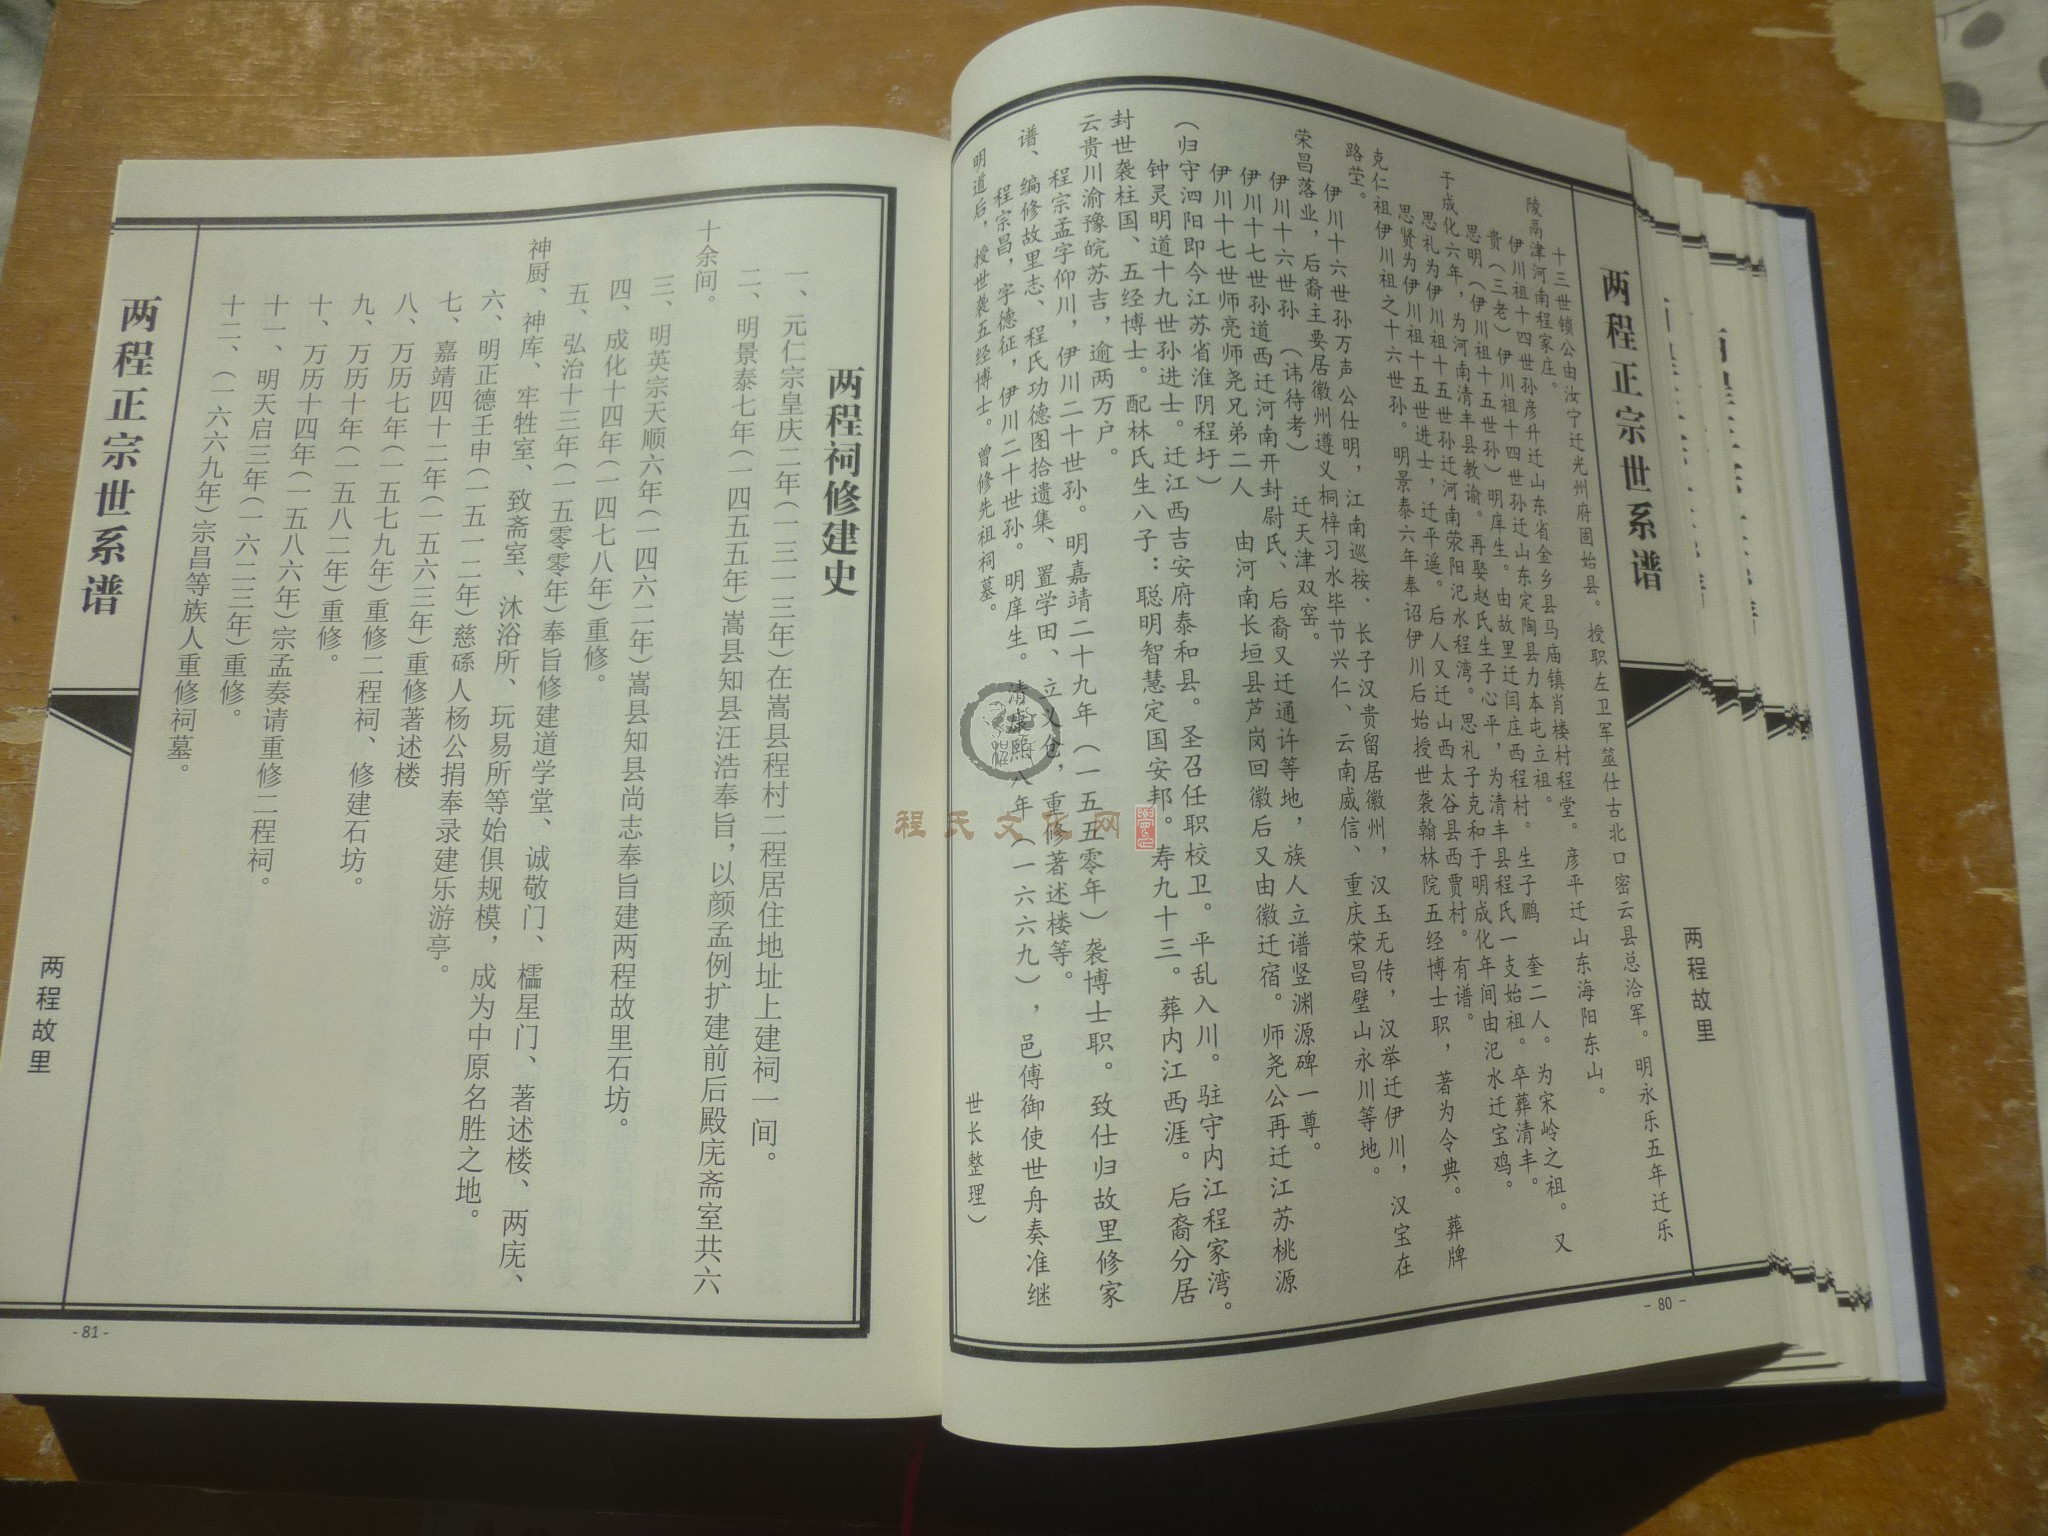 两程正宗世系谱
两程故里
十三世锁公由汝宁迁光州府固始县。授职左卫军筮仕古北口密云县总治军。明永乐五年迁乐
陵高津河南程家庄。
伊川祖十四世孙彦升迁山东省金乡县马庙镇肖楼村程堂。彦平迁山东海阳东山。
贵（三老）伊川祖十四世孙迁山东定陶县力本屯立祖。
思明（伊川祖十五世孙）明庠生。由故里迁闫庄西程村。生子鹏 奎二人。为宋岭之祖。又
于成化六年，为河南清丰县教谕。再娶赵氏生子心平，为清丰县程氏一支始祖。卒葬清丰。
思礼为伊川祖十五世孙迁河南荥阳汜水程湾。思礼子克和于明成化年间由汜水迁宝鸡。
思贤为伊川祖十五世进士，迁平遥。后人又迁山西太谷县西贾村。有谱。
克仁祖伊川祖之十六世孙。明景泰六年奉诏伊川后始授世袭翰林院五经博士职，著为令典。葬牌
路茔。
伊川十六世孙万声公仕明，江南巡按，长子汉贵留居徽州，汉玉无传，汉举迁伊川，汉宝在
荣昌落业，后裔主要居徽州遵义桐梓习水毕节兴仁、云南威信、重庆荣昌璧山永川等地。
伊川十六世孙 （讳待考） 迁天津双窑。
伊川十七世孙道西迁河南开封尉氏、后裔又迁通许等地，族人立谱竖渊源碑一尊。
伊川十七世师亮师尧兄弟二人 由河南长垣县芦岗回徽后又由徽迁宿。师尧公再迁江苏桃源
（归守泗阳即今江苏省淮阴程圩）
钟灵明道十九世孙进士。迁江西吉安府泰和县。圣召任职校卫。平乱入川。驻守内江程家湾。
封世袭柱国、五经博士。配林氏生八子：聪明智慧定国安邦。寿九十三。葬内江西涯。后裔分居
云贵川渝豫皖苏吉，逾两万户。
程宗孟字仰川，伊川二十世孙。明嘉靖二十九年（一五五零年）袭博士职。致仕归故里修家
谱、编修故里志、程氏功德图拾遗集、置学田、立义仓，重修著述楼等。
程宗昌，字德征，伊川二十世孙。明庠生。清康熙八年（一六六九），邑傅御使世舟奏准继
明道后，授世袭五经博士。曾修先祖祠墓。
世长整理）
- 80 -
程氏文化网
两程祠修建史
一、元仁宗皇庆二年（一三一三年）在嵩县程村二程居住地址上建祠一间。
二、明景泰七年（一四五五年）嵩县知县汪浩奉旨，以颜孟例扩建前后殿庑斋室共六
十余间。
三、明英宗天顺六年（一四六二年）嵩县知县尚志奉旨建两程故里石坊。
四、成化十四年（一四七八年）重修。
五、弘治十三年（一五零零年）奉旨修建道学堂、诚敬门、櫺星门、著述楼、两庑、
神厨、神库、牢牲室、致斋室、沐浴所、玩易所等始俱规模，成为中原名胜之地。
六、明正德壬申（一五一二年）慈繇人杨公捐奉录建乐游亭。
七、嘉靖四十二年（一五六三年）重修著述楼
八、万历七年（一五七九年）重修二程祠、修建石坊。
九、万历十年（一五八二年）重修。
十、万历十四年（一五八六年）宗孟奏请重修二程祠。
十一、明天启三年（一六二三年）重修。
十二、（一六六九年）宗昌等族人重修祠墓。
两程正宗世系谱
两程故里
- 81 -